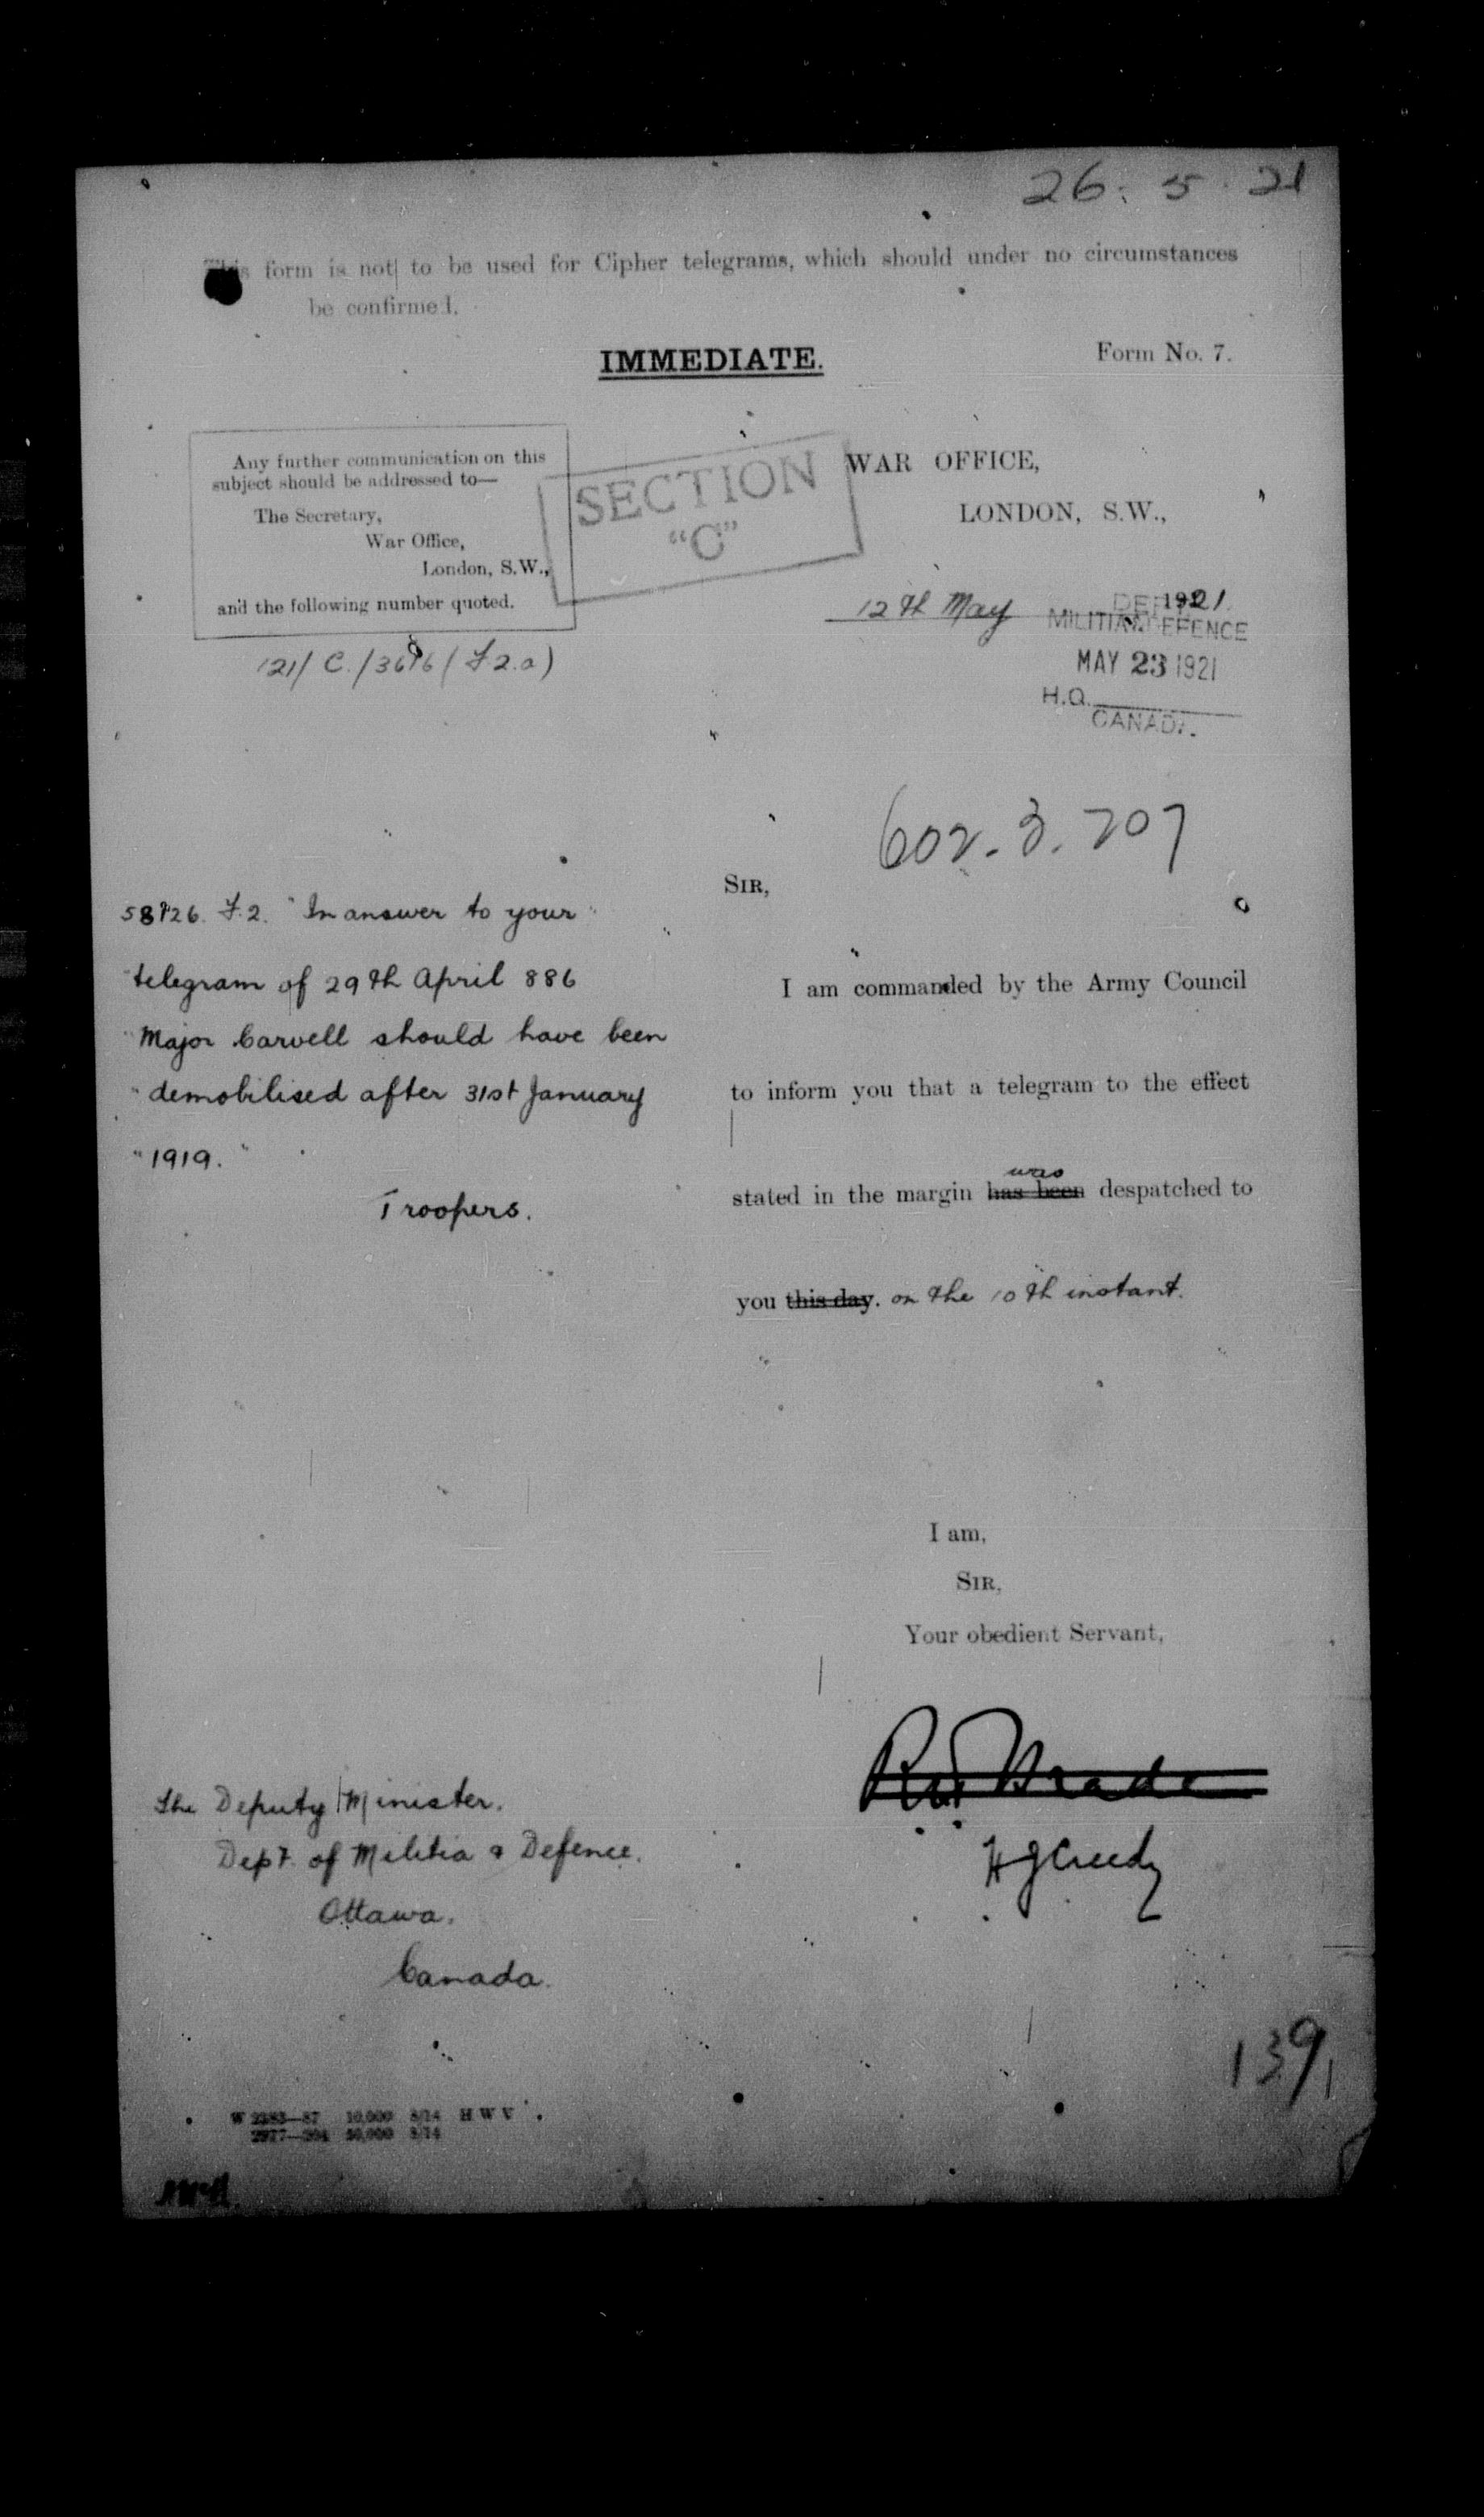 26. 5. 21
This form is not to be used for Cipher telegrams, which should under no circumstances
be confirmed.
IMMEDIATE.
Form No. 7.
Any further communication on this
subject should be addressed to—
The Secretary,
War Office,
London, S.W.,
and the following number quoted.
SECTION
"C"
WAR OFFICE,
LONDON, S.W.,
12th May 1921.
MILITIA DEFENCE
MAY 23 1921
H.Q.
CANADA.
602-3-207
SIR,
58726. F.2. "In answer to your
"telegram of 29th April 886
"Major Carvell should have been
"demobilised after 31st January
"1919."
Troopers.
I am commanded by the Army Council
to inform you that a telegram to the effect
was
stated in the margin has been despatched to
you this day. on the 10th instant.
I am,
SIR,
Your obedient Servant,
HJCreedy
The Deputy Minister.
Dept. of Militia & Defence.
Ottawa.
Canada.
139
10,000 8/14 H W V
50,000 8/14